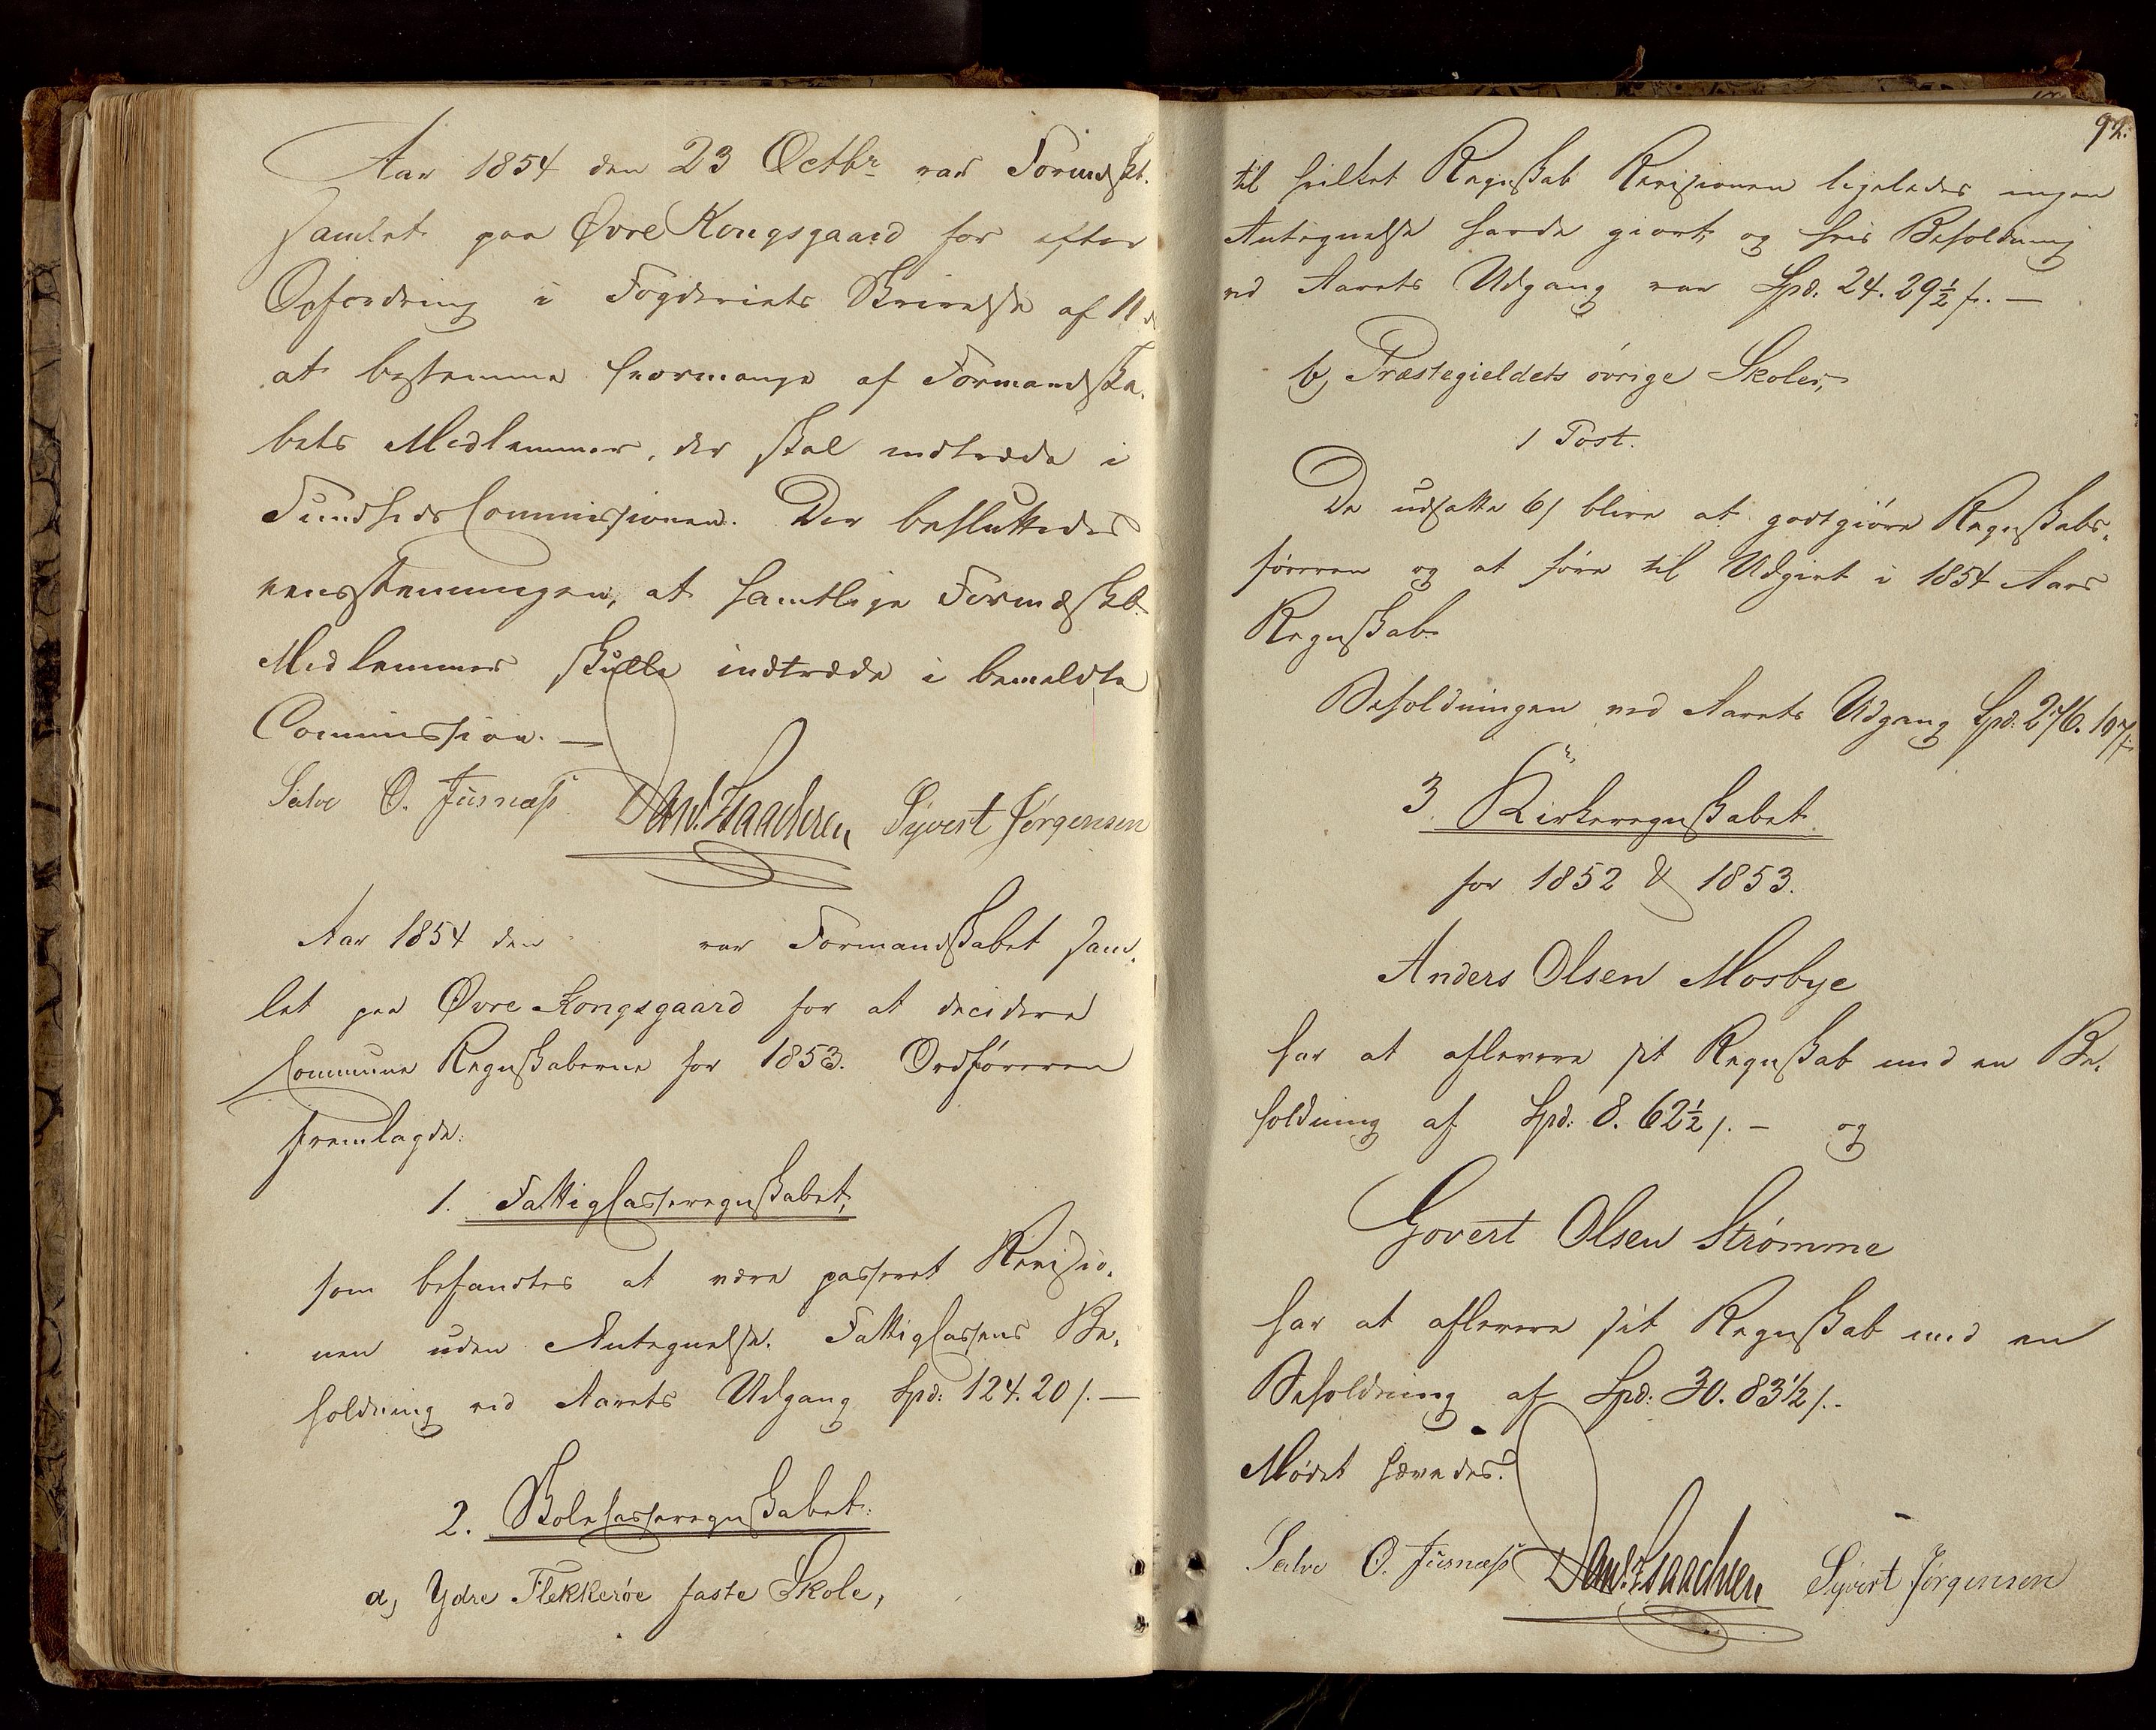 Aar 1854 den 23 Octbr var Formdskt.
samlet paa Øvre Kongsgaard for efter
Opfordring i Fogderiets Skrivelse af 11 d
at bestemme hvormange af Formandska,
bets Medlemmer, der skal indtræde i
SundhedsCommissionen. Der besluttedes
eensstemmigen, at samtlige Formdskb.
Medlemmer skulle indtræde i bemeldte
Commission. —
Salve O. Tusnæs Dan. Isaachsen Syvert Jørgensen
Aar 1854 den var Formandskabet sam,
let paa Øvre Kongsgaard for at decidere
Commune Regnskaberne for 1853. Ordføreren
fremlagde:
1. Fattigcasseregnskabet,
som befandtes at være passeret Revisio,
nen uden Antegnelse. Fattigcassens Be,
holdning ved Aarets Udgang Spd: 124. 20 s. —
2. Skolecasseregnskabet:
a, Ydre Flekkerøe faste Skole,
92.
til hvilket Regnskab Revisionen ligeledes ingen
Antegnelse havde giort, og hvis Beholdning
ved Aarets Udgang var Spd. 24. 29½ s. —
b, Præstegieldets øvrige Skoler,
1 Post.
De udsatte 6 s blive at godtgiøre Regnskabs,
føreren og at føre til Udgivt i 1854 Aars
Regnskab.
Beholdningen ved Aarets Udgang Spd:
3. Kirkeregnskabet
for 1852 & 1853.
Anders Olsen Mosbye
har at aflevere sit Regnskab med en Be,
holdning af Spd: 8. 62½ s. — og
Govert Olsen Strømme
har at aflevere sit Regnskab med en
Beholdning af Spd: 30. 83½ s. -
Mødet hævedes.
Salve O. Tusnæs Dan. Isaachsen Syvert Jørgensen